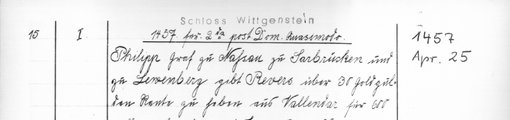 Schloss Wittgenstein
15 I 1457 fer 2da post Dom. Quasimodo. 1457
Philipp Graf zu Nassau zu Sarbrücken und Apr. 25
zu Lewenberg gibt Revers über 30 Goldgul-
den Rente zu heben aus Vallendar für 600